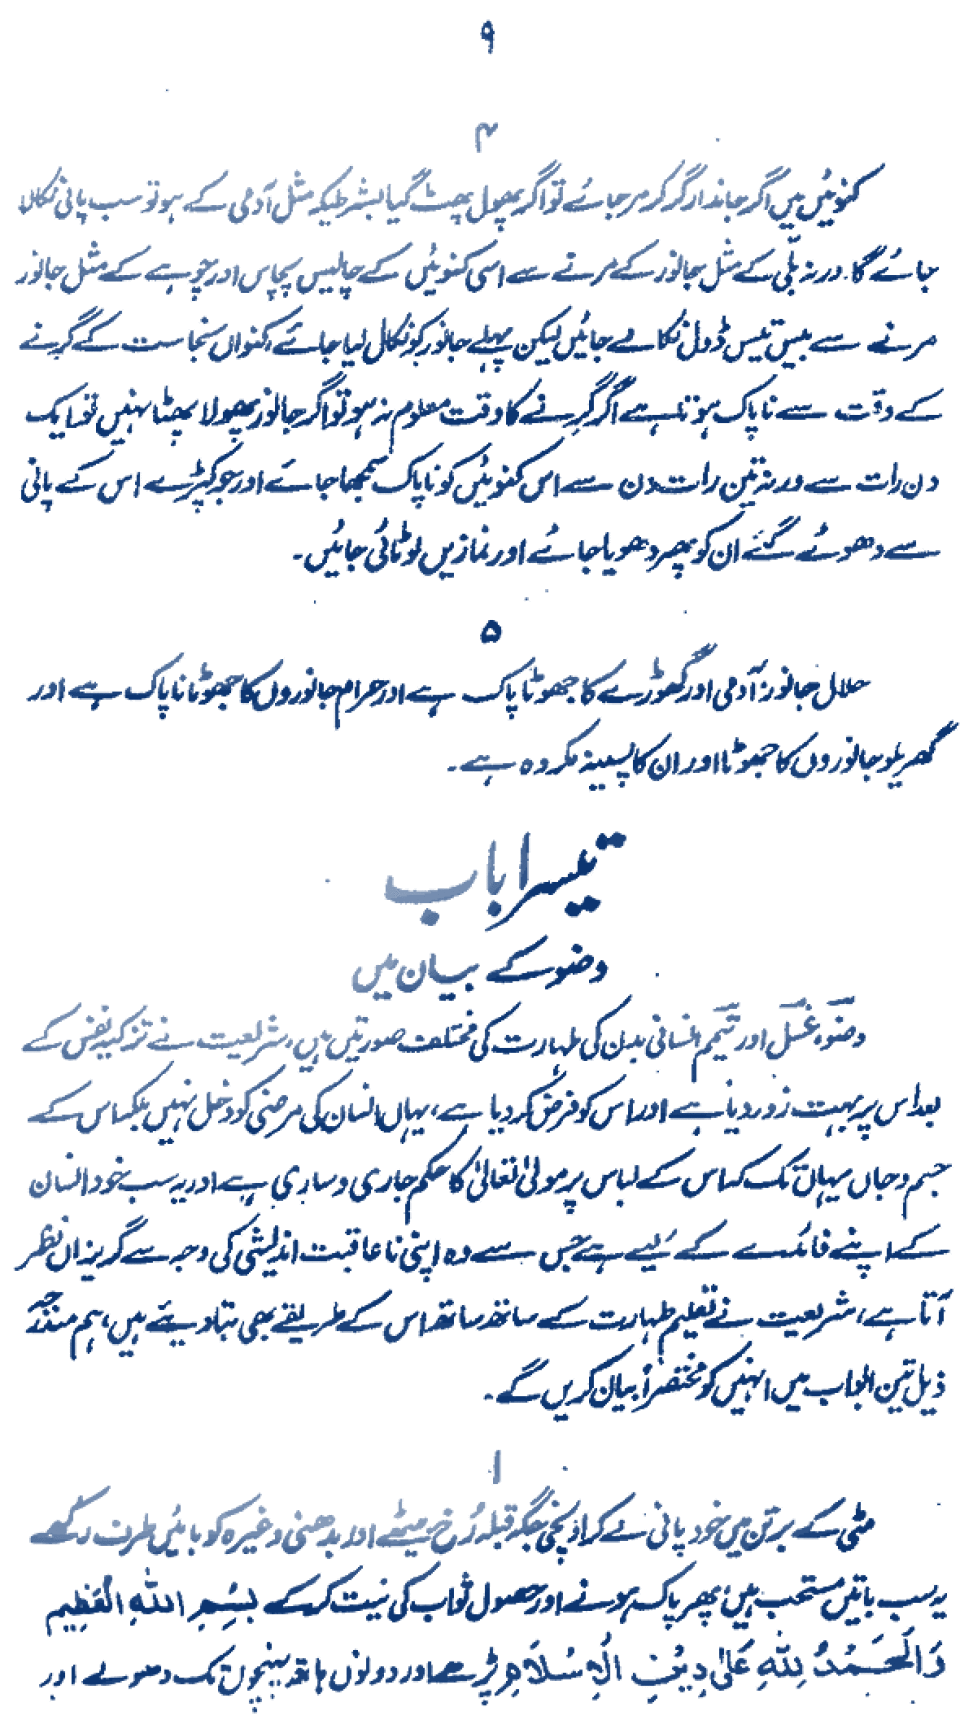 ۹
۴
کنوئیں میں اگر جاندار گر کر مر جائے تو اگر پھول پھٹ گیا بشرطیکہ مثل آدمی کے ہو تو سب پانی نکالا
جائے گا۔ ورنہ بلّی کے مثل جانور کے مرنے سے اسی کنوئیں کے چالیس پچاس اور چوہے کے مثل جانور
مرنے سے بیس تیس ڈول نکالے جائیں لیکن پہلے جانور کو نکال لیا جائے، کنواں نجاست کے گرنے
کے وقت سے ناپاک ہوتا ہے اگر گرنے کا وقت معلوم نہ ہو تو اگر جانور پھولا پھٹا نہیں تو ایک
دن رات سے ورنہ تین رات دن سے اس کنوئیں کو ناپاک سمجھا جائے اور جو کپڑے اس کے پانی
سے دھوئے گئے ان کو پھر دھویا جائے اور نمازیں لوٹائی جائیں۔
۵
حلال جانور، آدمی اور گھوڑے کا جھوٹا پاک ہے اور حرام جانوروں کا جھوٹا ناپاک ہے اور
گھریلو جانوروں کا جھوٹا اور ان کا پسینہ مکروہ ہے۔
تیسرا باب
وضو کے بیان میں
وضو، غسل اور تیمم انسانی بدن کی طہارت کی مختلف صورتیں ہیں، شریعت نے تزکیہ نفس کے
بعد اس پر بہت زور دیا ہے اور اس کو فرض کر دیا ہے، یہاں انسان کی مرضی کو دخل نہیں بلکہ اس کے
جسم و جاں یہاں تک کہ اس کے لباس پر مولیٰ تعالیٰ کا حکم جاری و ساری ہے اور یہ سب خود انسان
کے اپنے فائدے کے لیے ہے جس سے وہ اپنی ناعاقبت اندیشی کی وجہ سے گریزاں نظر
آتا ہے، شریعت نے تعلیم طہارت کے ساتھ ساتھ اس کے طریقے بھی بتا دیئے ہیں، ہم مندرجہ
ذیل تین ابواب میں انہیں کو مختصراً بیان کریں گے۔
۱
مٹی کے برتن میں خود پانی لے کر اونچی جگہ قبلہ رُخ بیٹھے اور بدھنی وغیرہ کو بائیں طرف رکھے
یہ سب باتیں مستحب ہیں، پھر پاک ہونے اور حصول ثواب کی نیت کر کے بِسْمِ اللہِ الْعَظِیْم
وَالْحَمْدُ لِلّٰہِ عَلٰی دِیْنِ الْاِسْلَامِ پڑھے اور دونوں ہاتھ پہنچوں تک دھولے اور